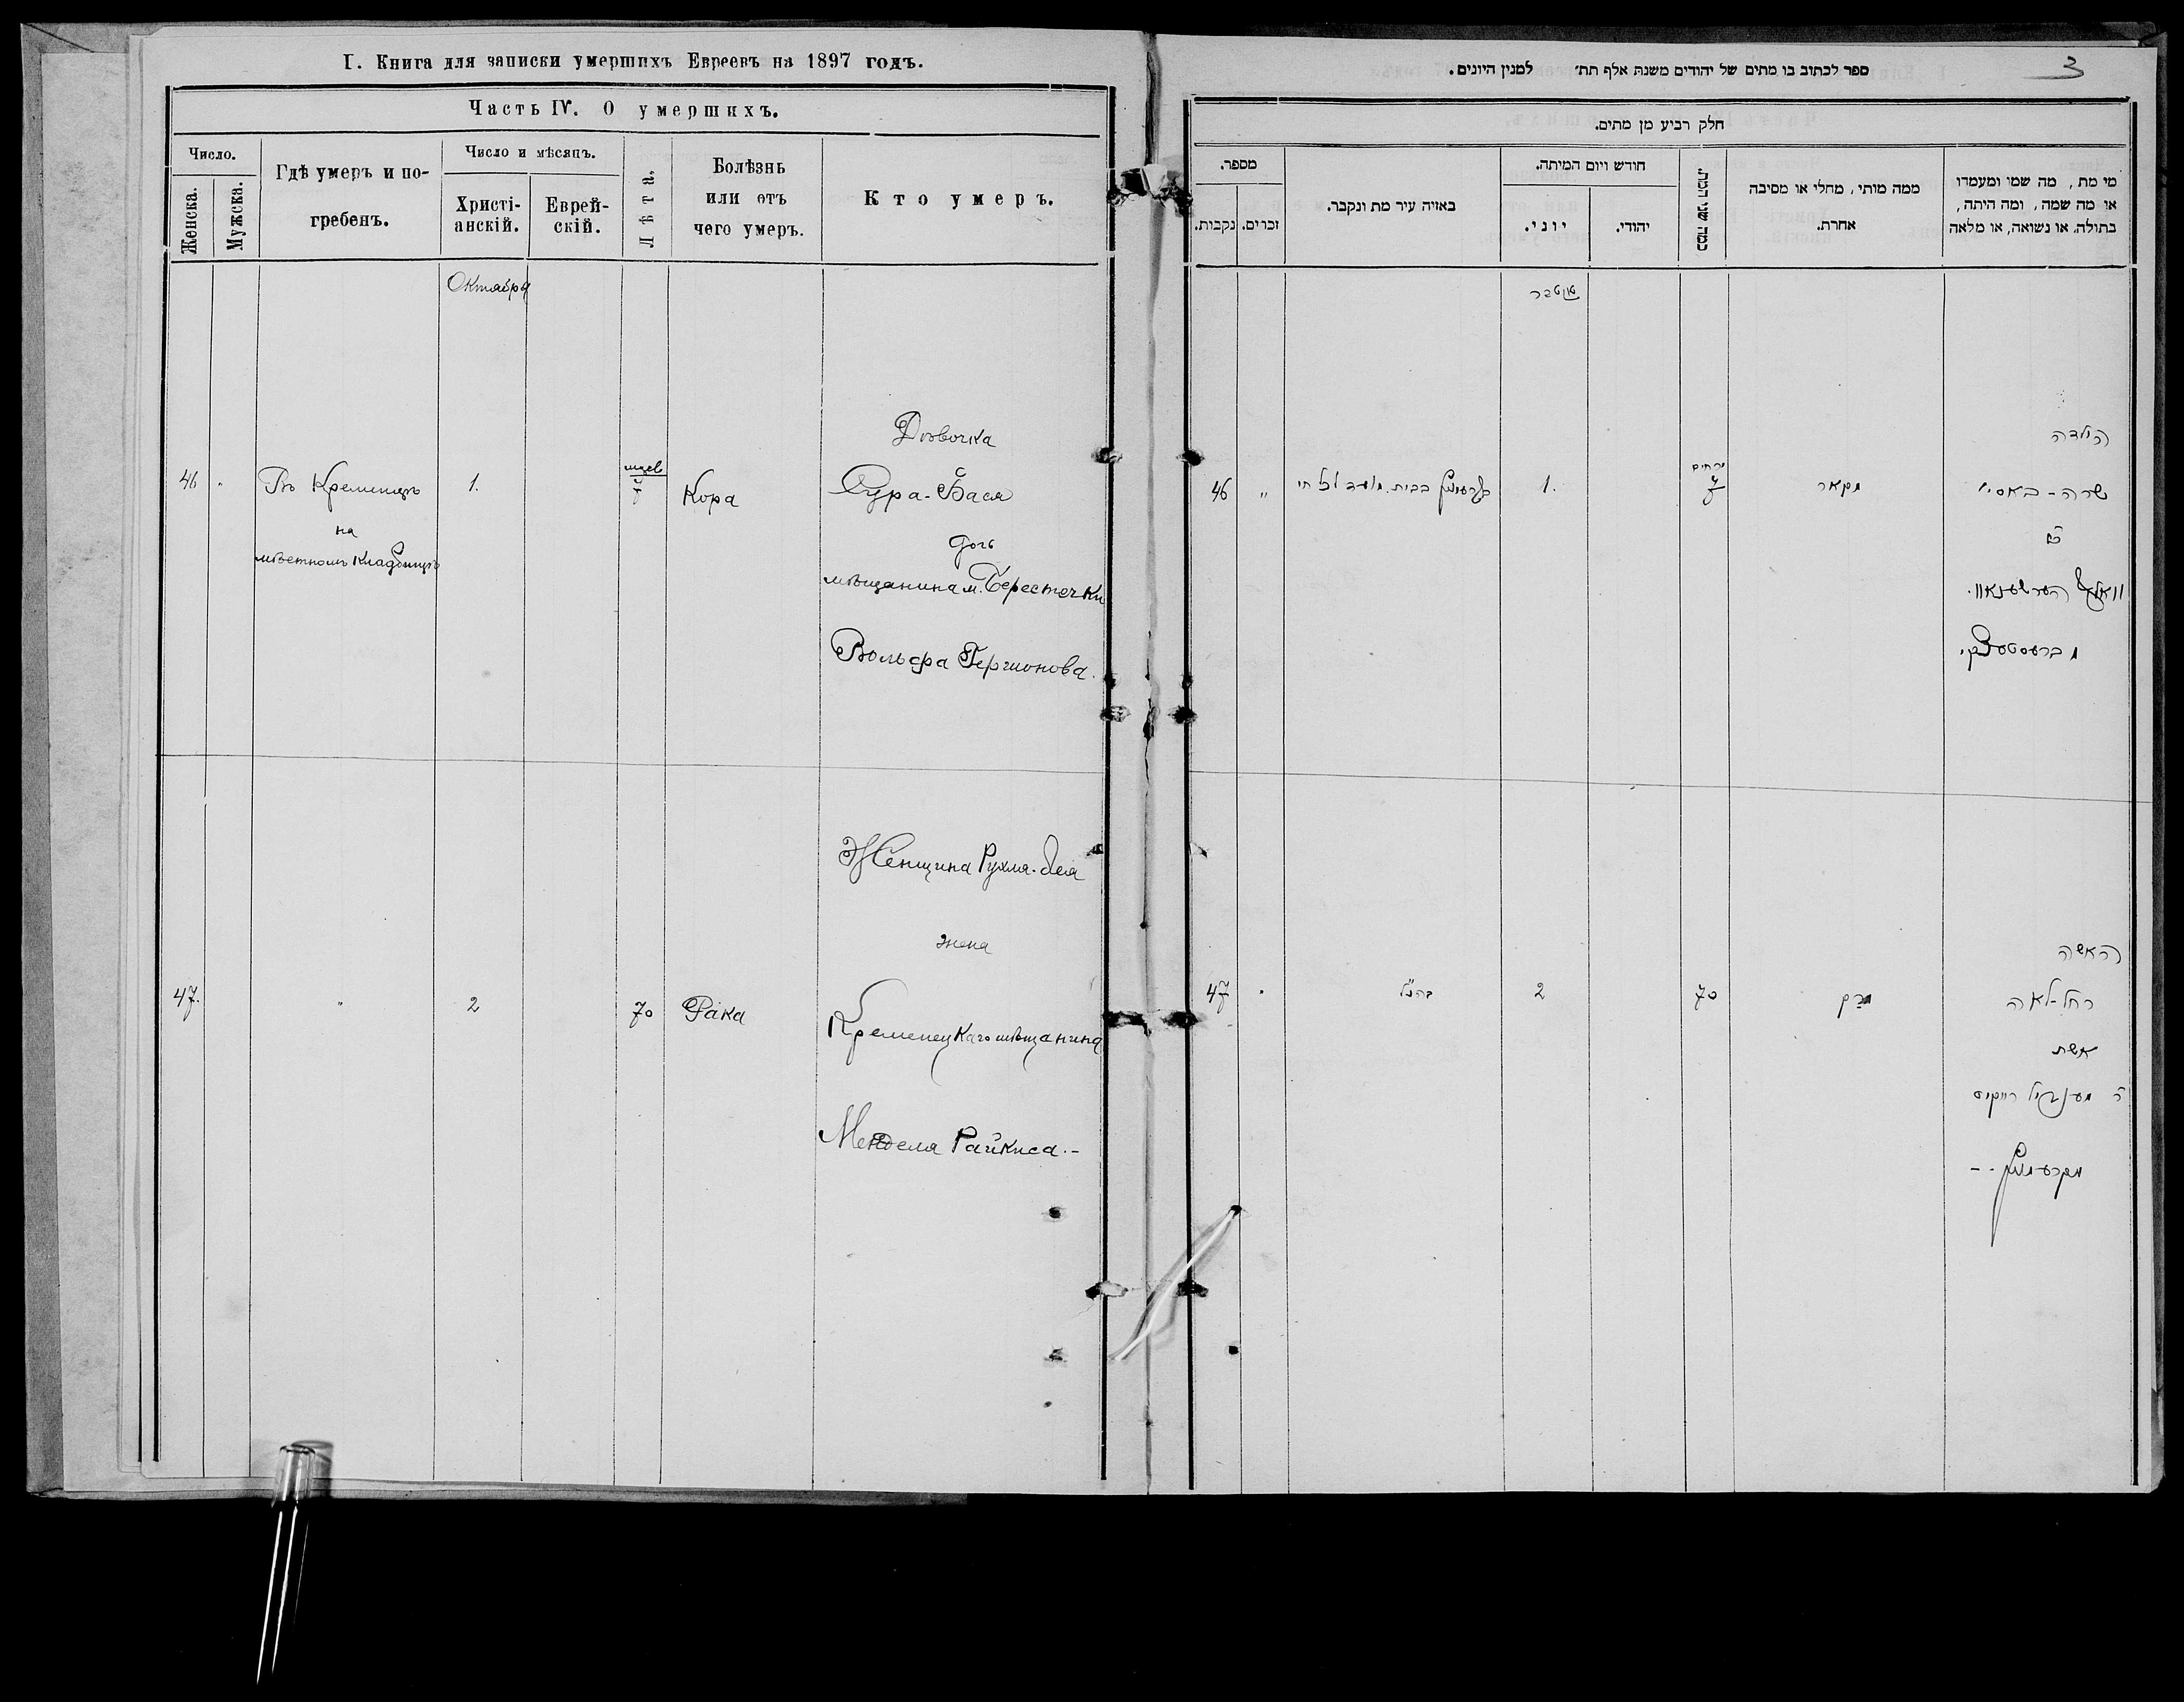 I. Книга для записки умершихъ Евреевъ на 1897 годъ.
Часть IV. О умершихъ.
Число.
Женска.
Мужска.
Гдѣ умеръ и по-
гребенъ.
Число и мѣсяцъ.
Христі-
анскій.
Еврей-
скій.
Лѣта.
Болѣзнь
или отъ
чего умеръ.
Кто умеръ.
Октября
46
Въ Кременцѣ
на
мѣстномъ кладбищѣ
1.
7
Кора
Дѣвочка
Сура-Бася
дочь
мѣщанина м. Берестечки
Вольфа Гершонова.
47.
"
2
70
Рака
Женщина Рухля-Лея
жена
Кременецкаго мѣщанина
Менделя Райкиса.-
3
ספר לכתוב בו מתים של יהודים משנת אלף תת׳ למנין היונים.
חלק רביע מן מתים.
מספר.
נקבות.
זכרים.
באזיה עיר מת ונקבר.
חודש ויום המיתה.
יוני.
יהודי.
כמה שני המת.
ממה מותי, מחלי או מסיבה
אחרת.
מי מת, מה שמו ומעמדו
או מה שמה, ומה היתה,
בתולה, או נשואה, או מלאה
46
"
בקרעמניץ בבית מועד לכל חי
1.
ירחים
7
מקאר
הילדה
שרה-באסי
וואלף הערשענאוו.
מברעסטעצקי.
47
כהנ״ל
2
70
מרק
האשה
רחל-לאה
אשת
ר׳ מענדיל רייקיס
מקרעמניץ.-